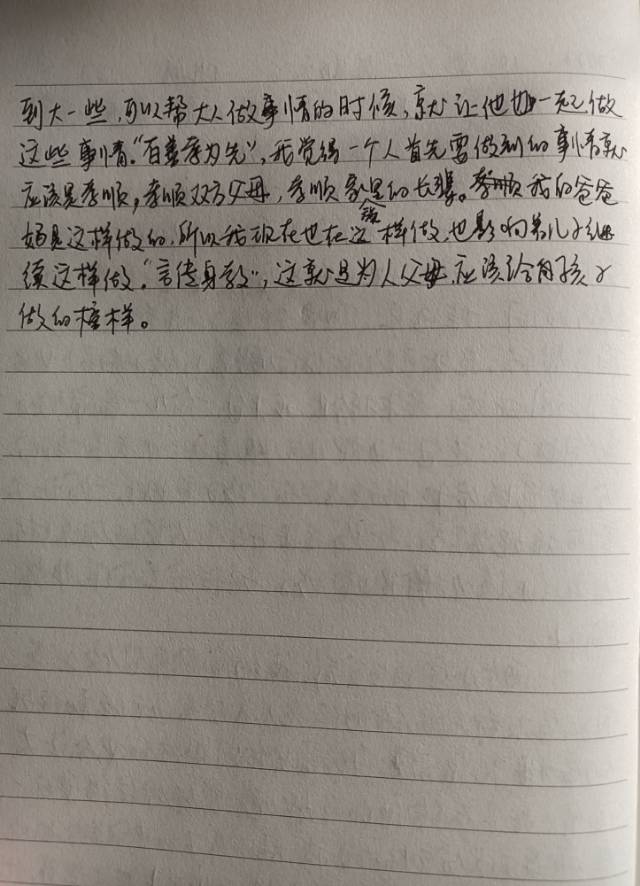 到大一些,可以帮大人做事情的时候,就让他也一起做
这些事情。“百善孝为先”,我觉得一个人首先要做到的事情就
应该是孝顺,孝顺双方父母,孝顺家里的长辈。我的爸爸
妈是这样做的,所以我现在也在这样做,也影响着儿子继
续这样做。“言传身教”,这就是为人父母,应该给自孩子
做的榜样。